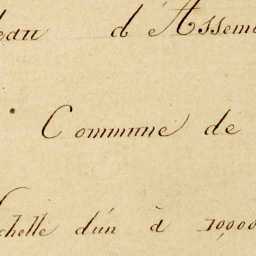 eau d'Assem
Commune de
chelle d'un à 10,000